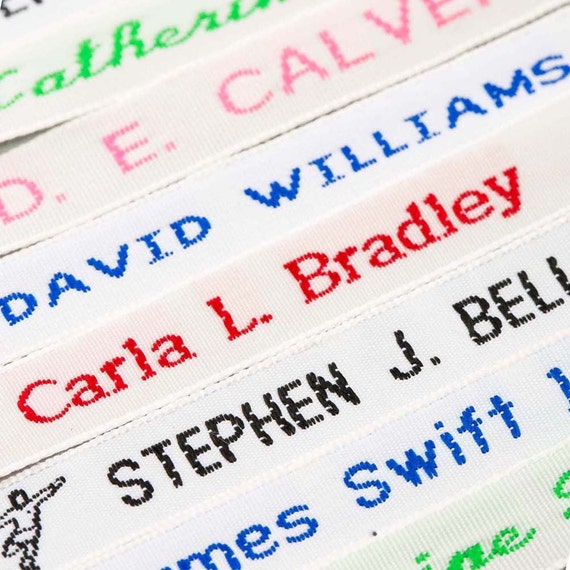 Catherine
D. E. CALVER
DAVID WILLIAMS
Carla L. Bradley
STEPHEN J. BELL
mes Swift
ine S